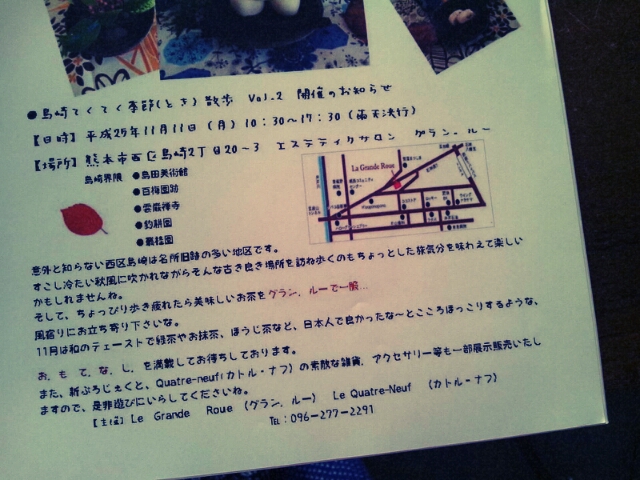 ●島崎てくてく季節(とき)散歩 Vol.2 開催のお知らせ
【日時】平成25年11月11日(月)10:30〜17:30(雨天決行)
【場所】熊本市西区島崎2丁目20-3 エステティクサロン グラン.ルー
島崎界隈 ●島田美術館
●百梅園跡
●雲巌禅寺
●釣耕園
●叢桂園
La Grande Roue
意外と知らない西区島崎は名所旧跡の多い地区です。
すこし冷たい秋風に吹かれながらそんな古き良き場所を訪ね歩くのもちょっとした旅気分を味わえて楽しい
かもしれませんね。
そして、ちょっぴり歩き疲れたら美味しいお茶をグラン.ルーで一服...
風宿りにお立ち寄り下さいな。
11月は和のテーストで緑茶やお抹茶、ほうじ茶など、日本人で良かったな〜とこころほっこりするような、
お.も.て.な.し.を満載してお待ちしております。
また、新ぷろじぇくと、Quatre-neuf(カトル・ナフ)の素敵な雑貨.アクセサリー等も一部展示販売いたし
ますので、是非遊びにいらしてくださいね。
【主催】Le Grande Roue (グラン.ルー) Le Quatre-Neuf (カトル・ナフ)
TEL:096-277-2291